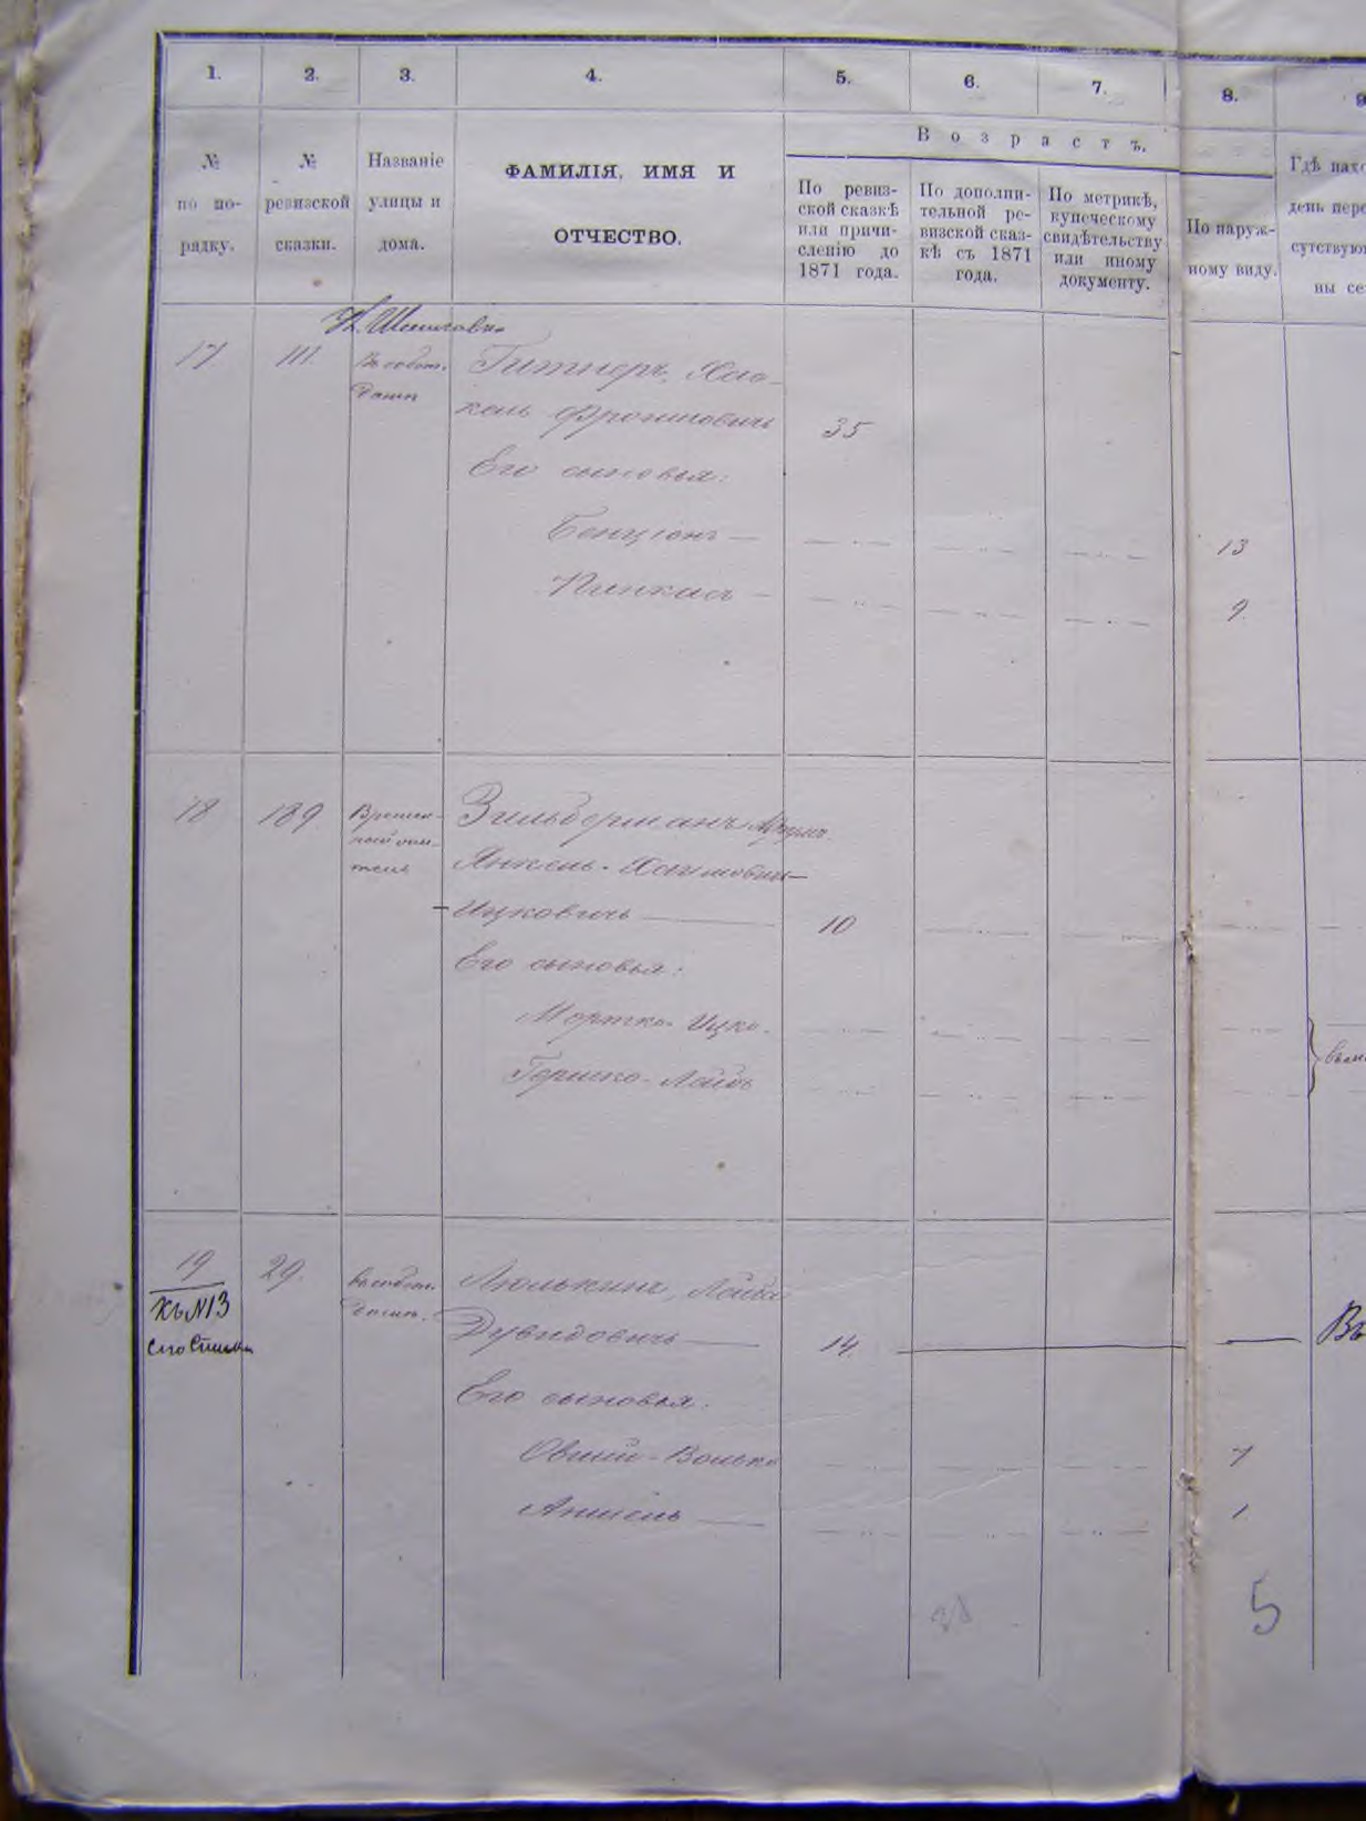 1. 2. 3. 4. 5. 6. 7. 8. 9
Возрастъ.
№ по по-рядку.
№ ревизской сказки.
Названіе улицы и дома.
ФАМИЛІЯ, ИМЯ И
ОТЧЕСТВО.
По ревиз-
ской сказкѣ
или причи-
сленію до
1871 года.
По дополни-
тельной ре-
визской сказ-
кѣ съ 1871
года.
По метрикѣ,
купеческому
свидѣтельству
или иному
документу.
По наруж-
ному виду.
Гдѣ нахо
день пере
сутствую
ны се
17. 111. Въ собст. Гитнеръ, Хас-
домѣ
кель Фроимовичъ 35
Его сыновья:
Бенціонъ — 13
Пинкасъ — 9
18 189 Времен-
Зильберманъ
Янкель-Хаимовичъ—
Ицковичъ 10
Его сыновья:
Мортко-Ицко.
Гершко-Лейбъ
19 29. Въ собст. Люлькинъ, Лейба
домѣ.
Къ №13
Дувидовичъ 14. Въ
Его сыновья:
Овшій-Волько 7
Аншель 1
5